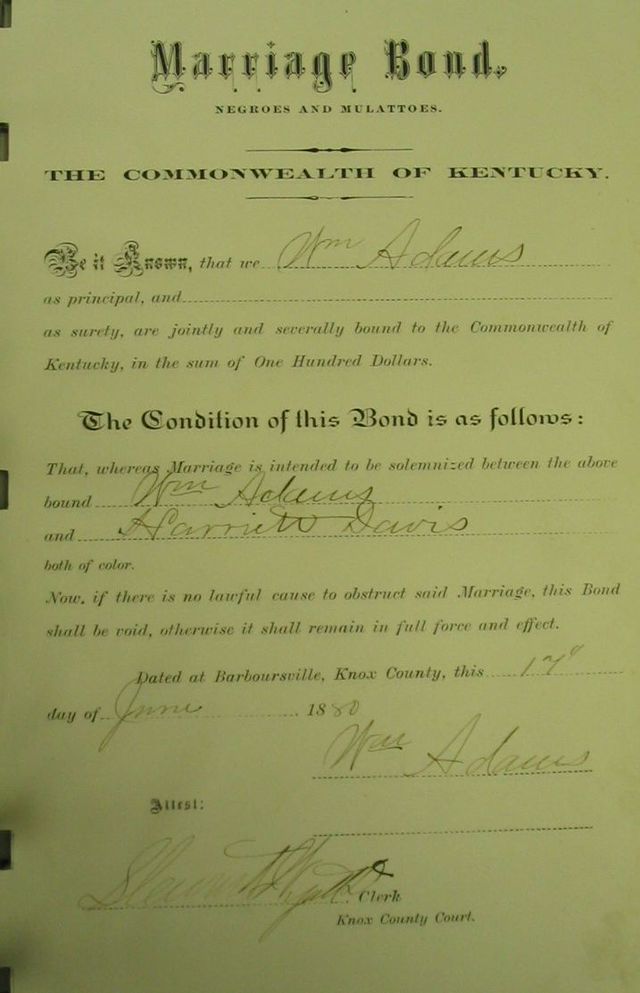 Marriage Bond,
NEGROES AND MULATTOES.
THE COMMONWEALTH OF KENTUCKY.
Be it Known, that we Wm Adams
as principal, and
as surety, are jointly and severally bound to the Commonwealth of
Kentucky, in the sum of One Hundred Dollars.
The Condition of this Bond is as follows:
That, whereas Marriage is intended to be solemnized between the above
bound Wm Adams
and Harriett Davis
both of color.
Now, if there is no lawful cause to obstruct said Marriage, this Bond
shall be void, otherwise it shall remain in full force and effect.
Dated at Barboursville, Knox County, this 17"
day of June 1880
Wm Adams
Attest:
Clerk
Knox County Court.